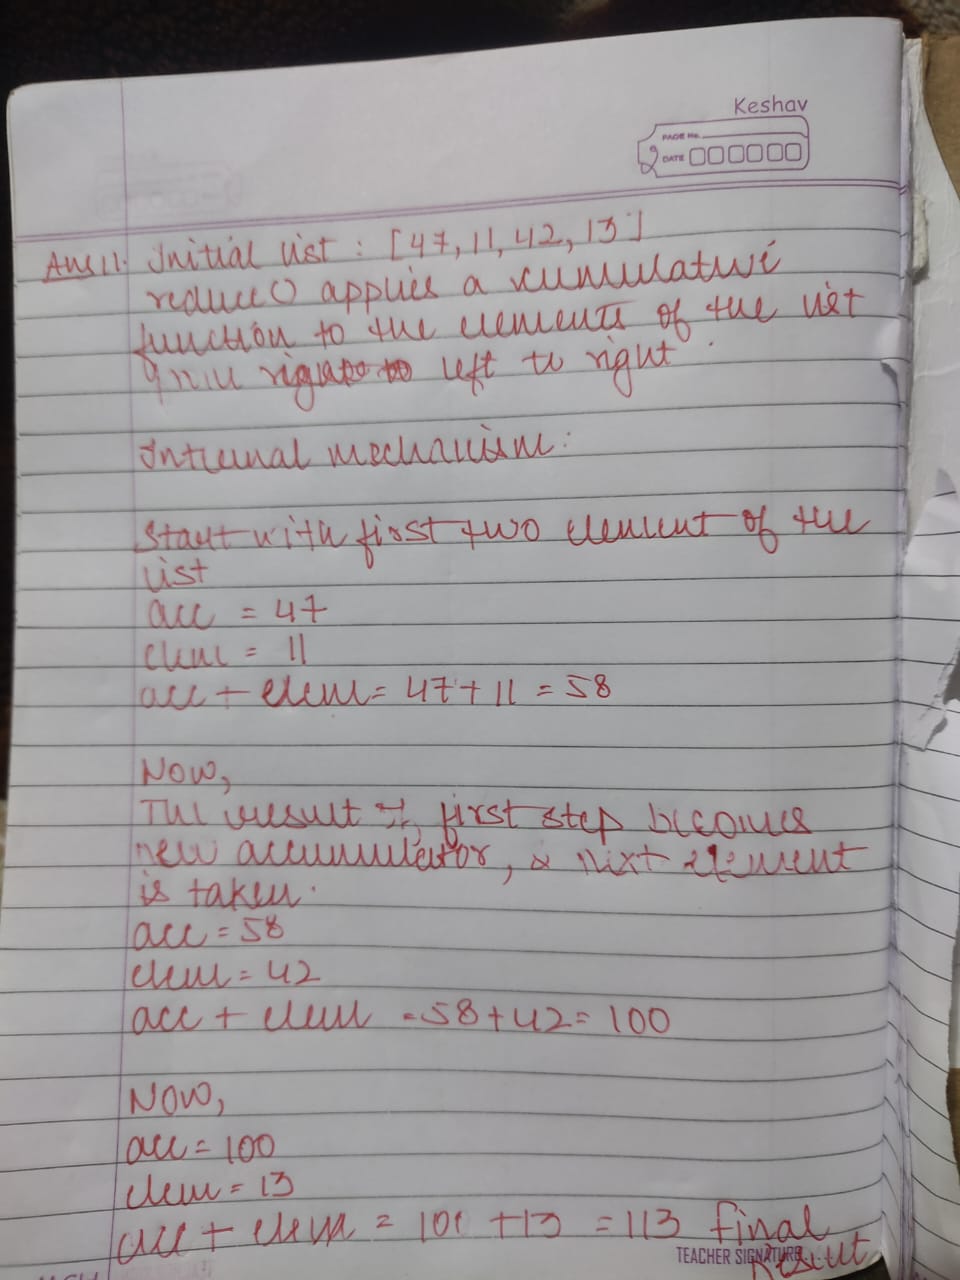 Keshav
PAGE No.
2
DATE
Ans 11. Initial list : [47, 11, 42, 13]
reduce() applies a cumulative
function to the elements of the list
left to right.
Internal mechanism:
Start with first two element of the
list
acc = 47
elem = 11
acc + elem = 47 + 11 = 58
Now,
The result of first step becomes
new accumulator, & next element
is taken.
acc = 58
elem = 42
acc + elem = 58 + 42 = 100
Now,
acc = 100
elem = 13
acc + elem = 100 + 13 = 113 final
TEACHER SIGNATURE
Result